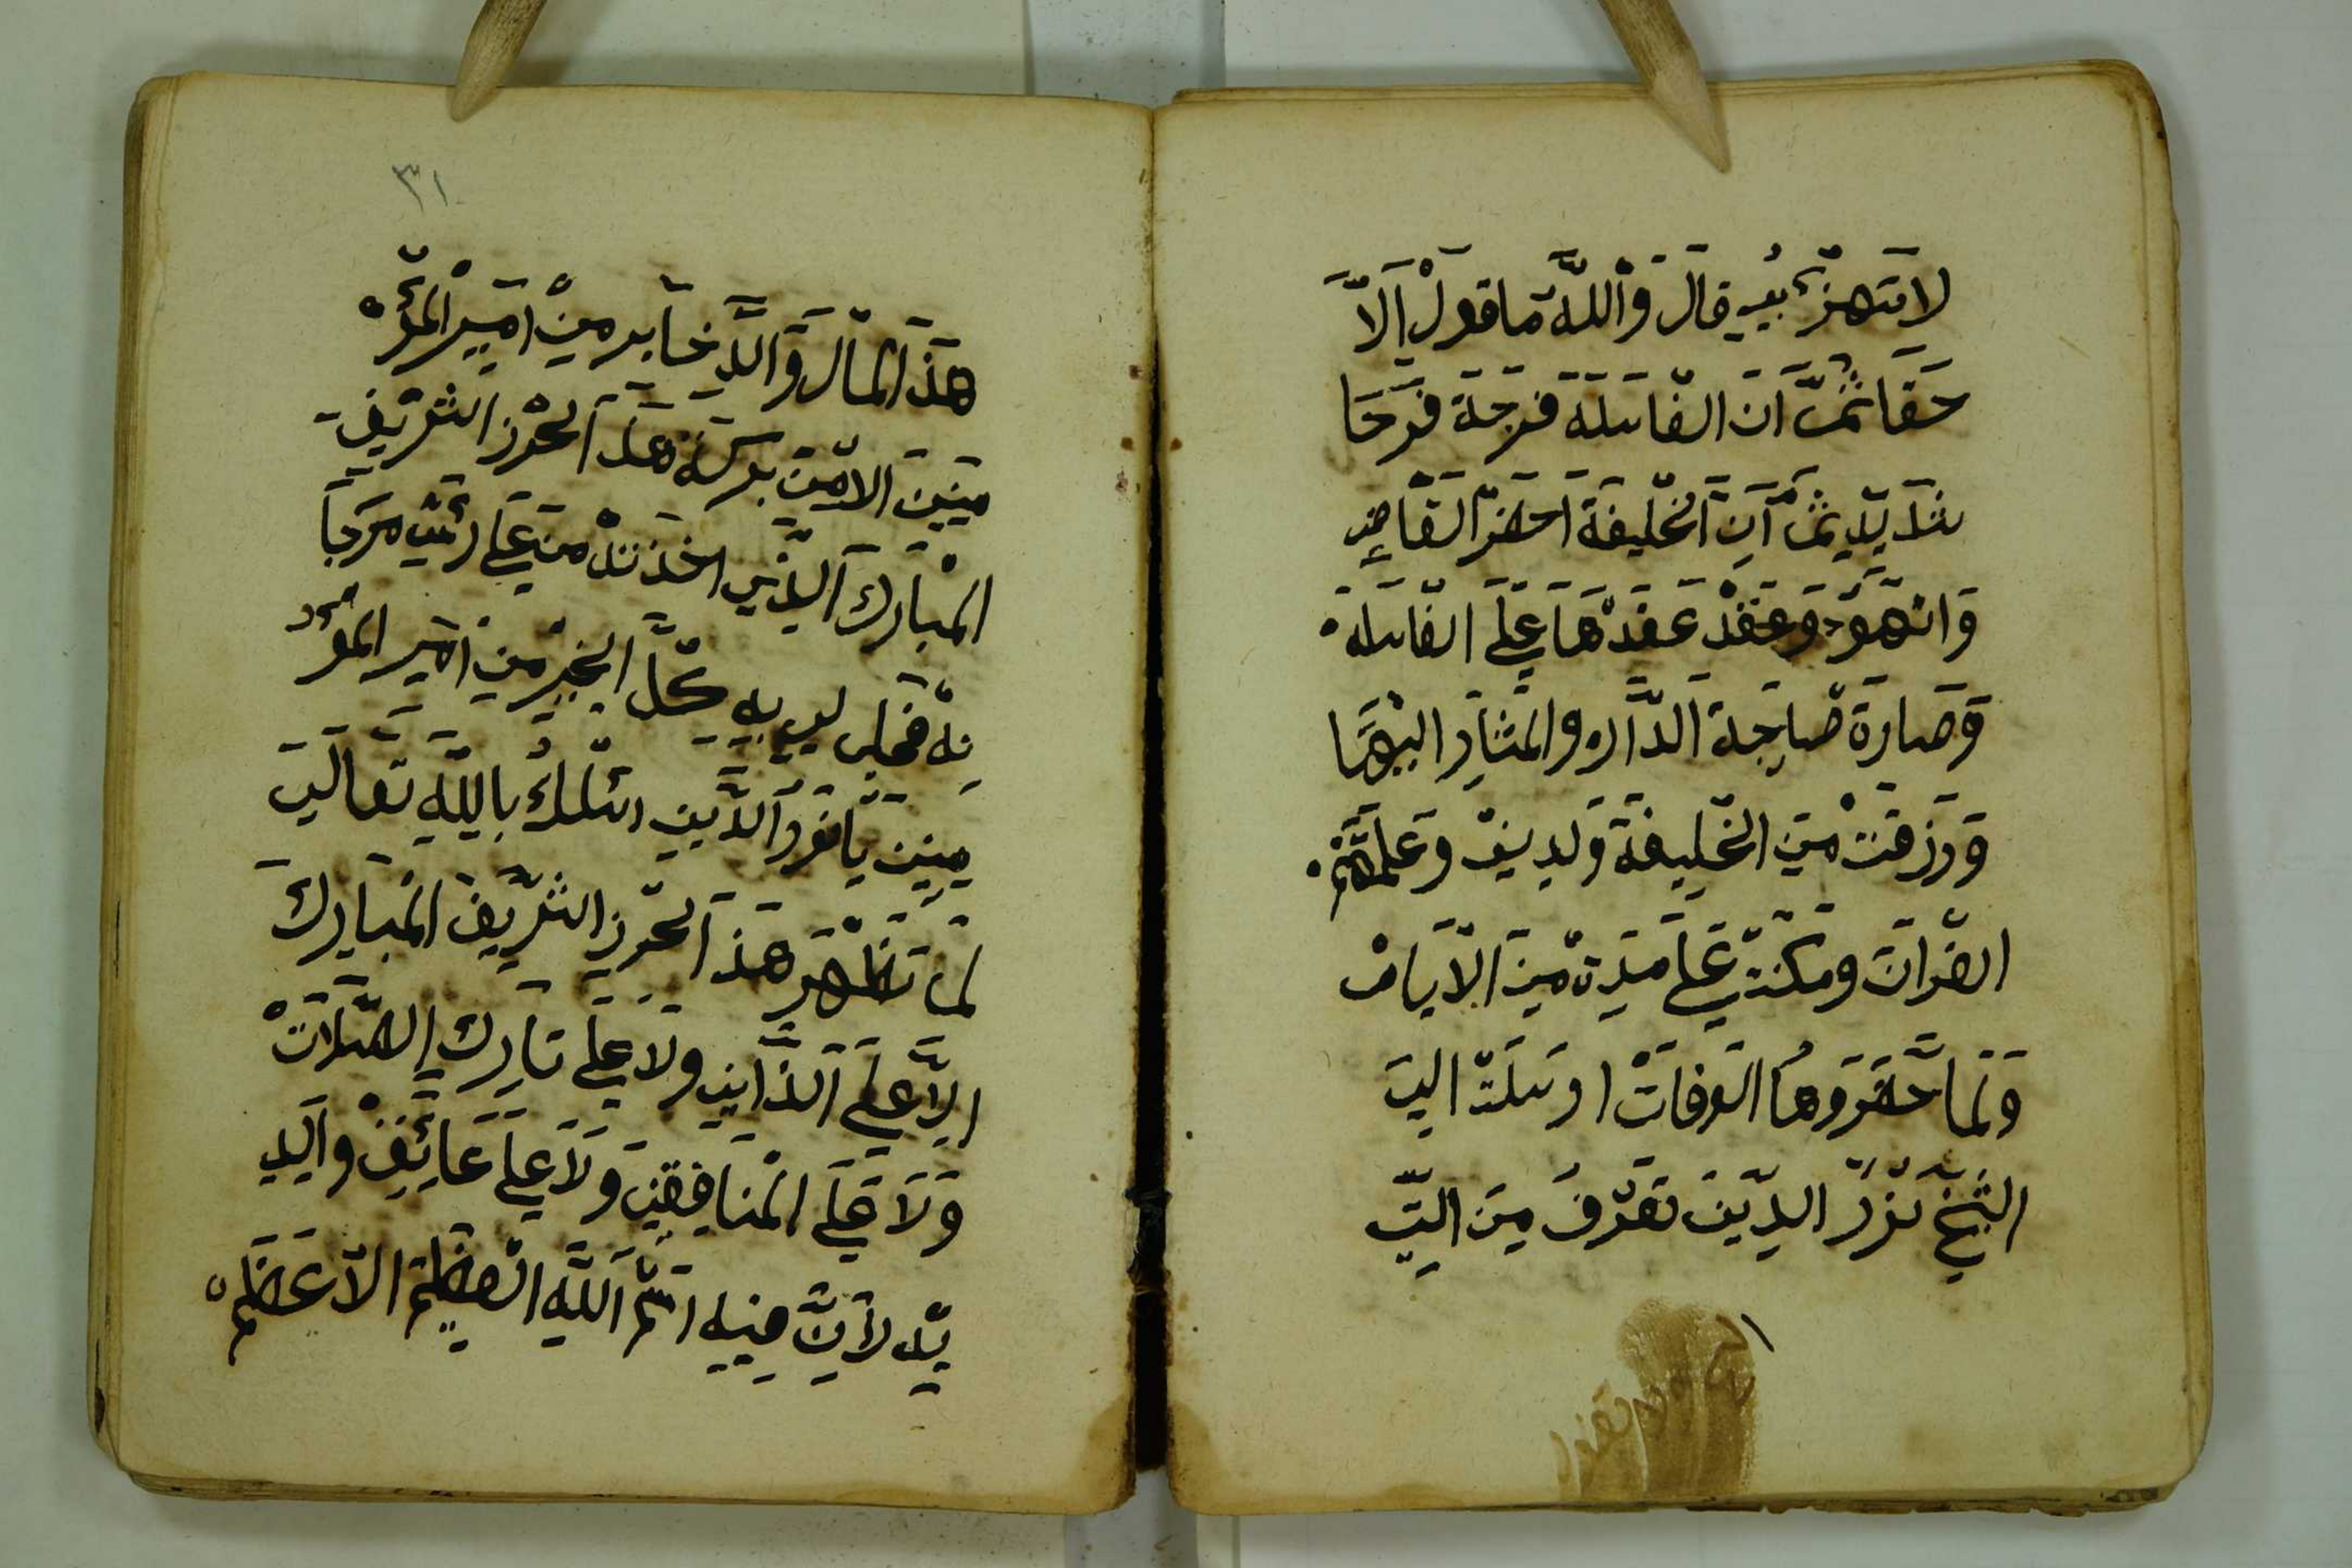 لَا تَهْزَئْ بُيِ قَالَ وَاْللَّهَ مَا قولْ اِلَاّ
حَقَا ثُمَّ اَنَ الغَاسَلَةَ فَرِحَةَ فَرَحَا
شَدَيَدِ ثُمَّا اَنَ اَلخْليفَةَ اَحضَرْ القَاضِ
وَعَقَدْ عَقَدْهَا عَلَى الغَاسله
وَصَارَة صَاحِبَةَ الدَّار والمشَار اليْهَا
وَرزقتْ مِنَ الخَليفةَ وَلدينْ وَعَلمتَّهُمْ
القرْاَنَ ومكَثةْ عَلَى مَدِة مِنَ الاَيامْ
وَلمَا حَضَروهَا الوَفاتْ ارسَلَةْ اليَ
الشَيْخْ نُوْرْ الدِيْنَ تَعَرْفَ مِنَ
٣١
هَذَ الْمَالَ وَالَّدِ مِنْ اَمِيرْ الْمُؤْ
مِنينَ الاَمِينَ بركة هَذَ اَلحْرز الشَريْفِ
المْبَاركَ اَلذِي اخذتهْ منَ عَلَى رَئسْ مَرجَاَ
نهْ فحصل لي بهِ كُلَّ الخيرْ مِنَ اميَر المؤ
مِنينَ يَا نُورَ الَدِّينِ اسْئلكْ باللَّهِ تَعَالَى
لَمَا تظْهَر هَذَ اَلحْرزَ الشَريْفْ المْبَارِكَ
اِلاَّ عَلَى وَلَا عَلى تَاركِ الصَّلَاتْ
وَلَا عَلَى المْنَافِقينَ وَلَا عَلَى عَائِفْ وَالِدِ
يْهِ لاَنَّ فِيهِ اسْمْ اللَّهِ العظِيمْ الاَعَظَمْ